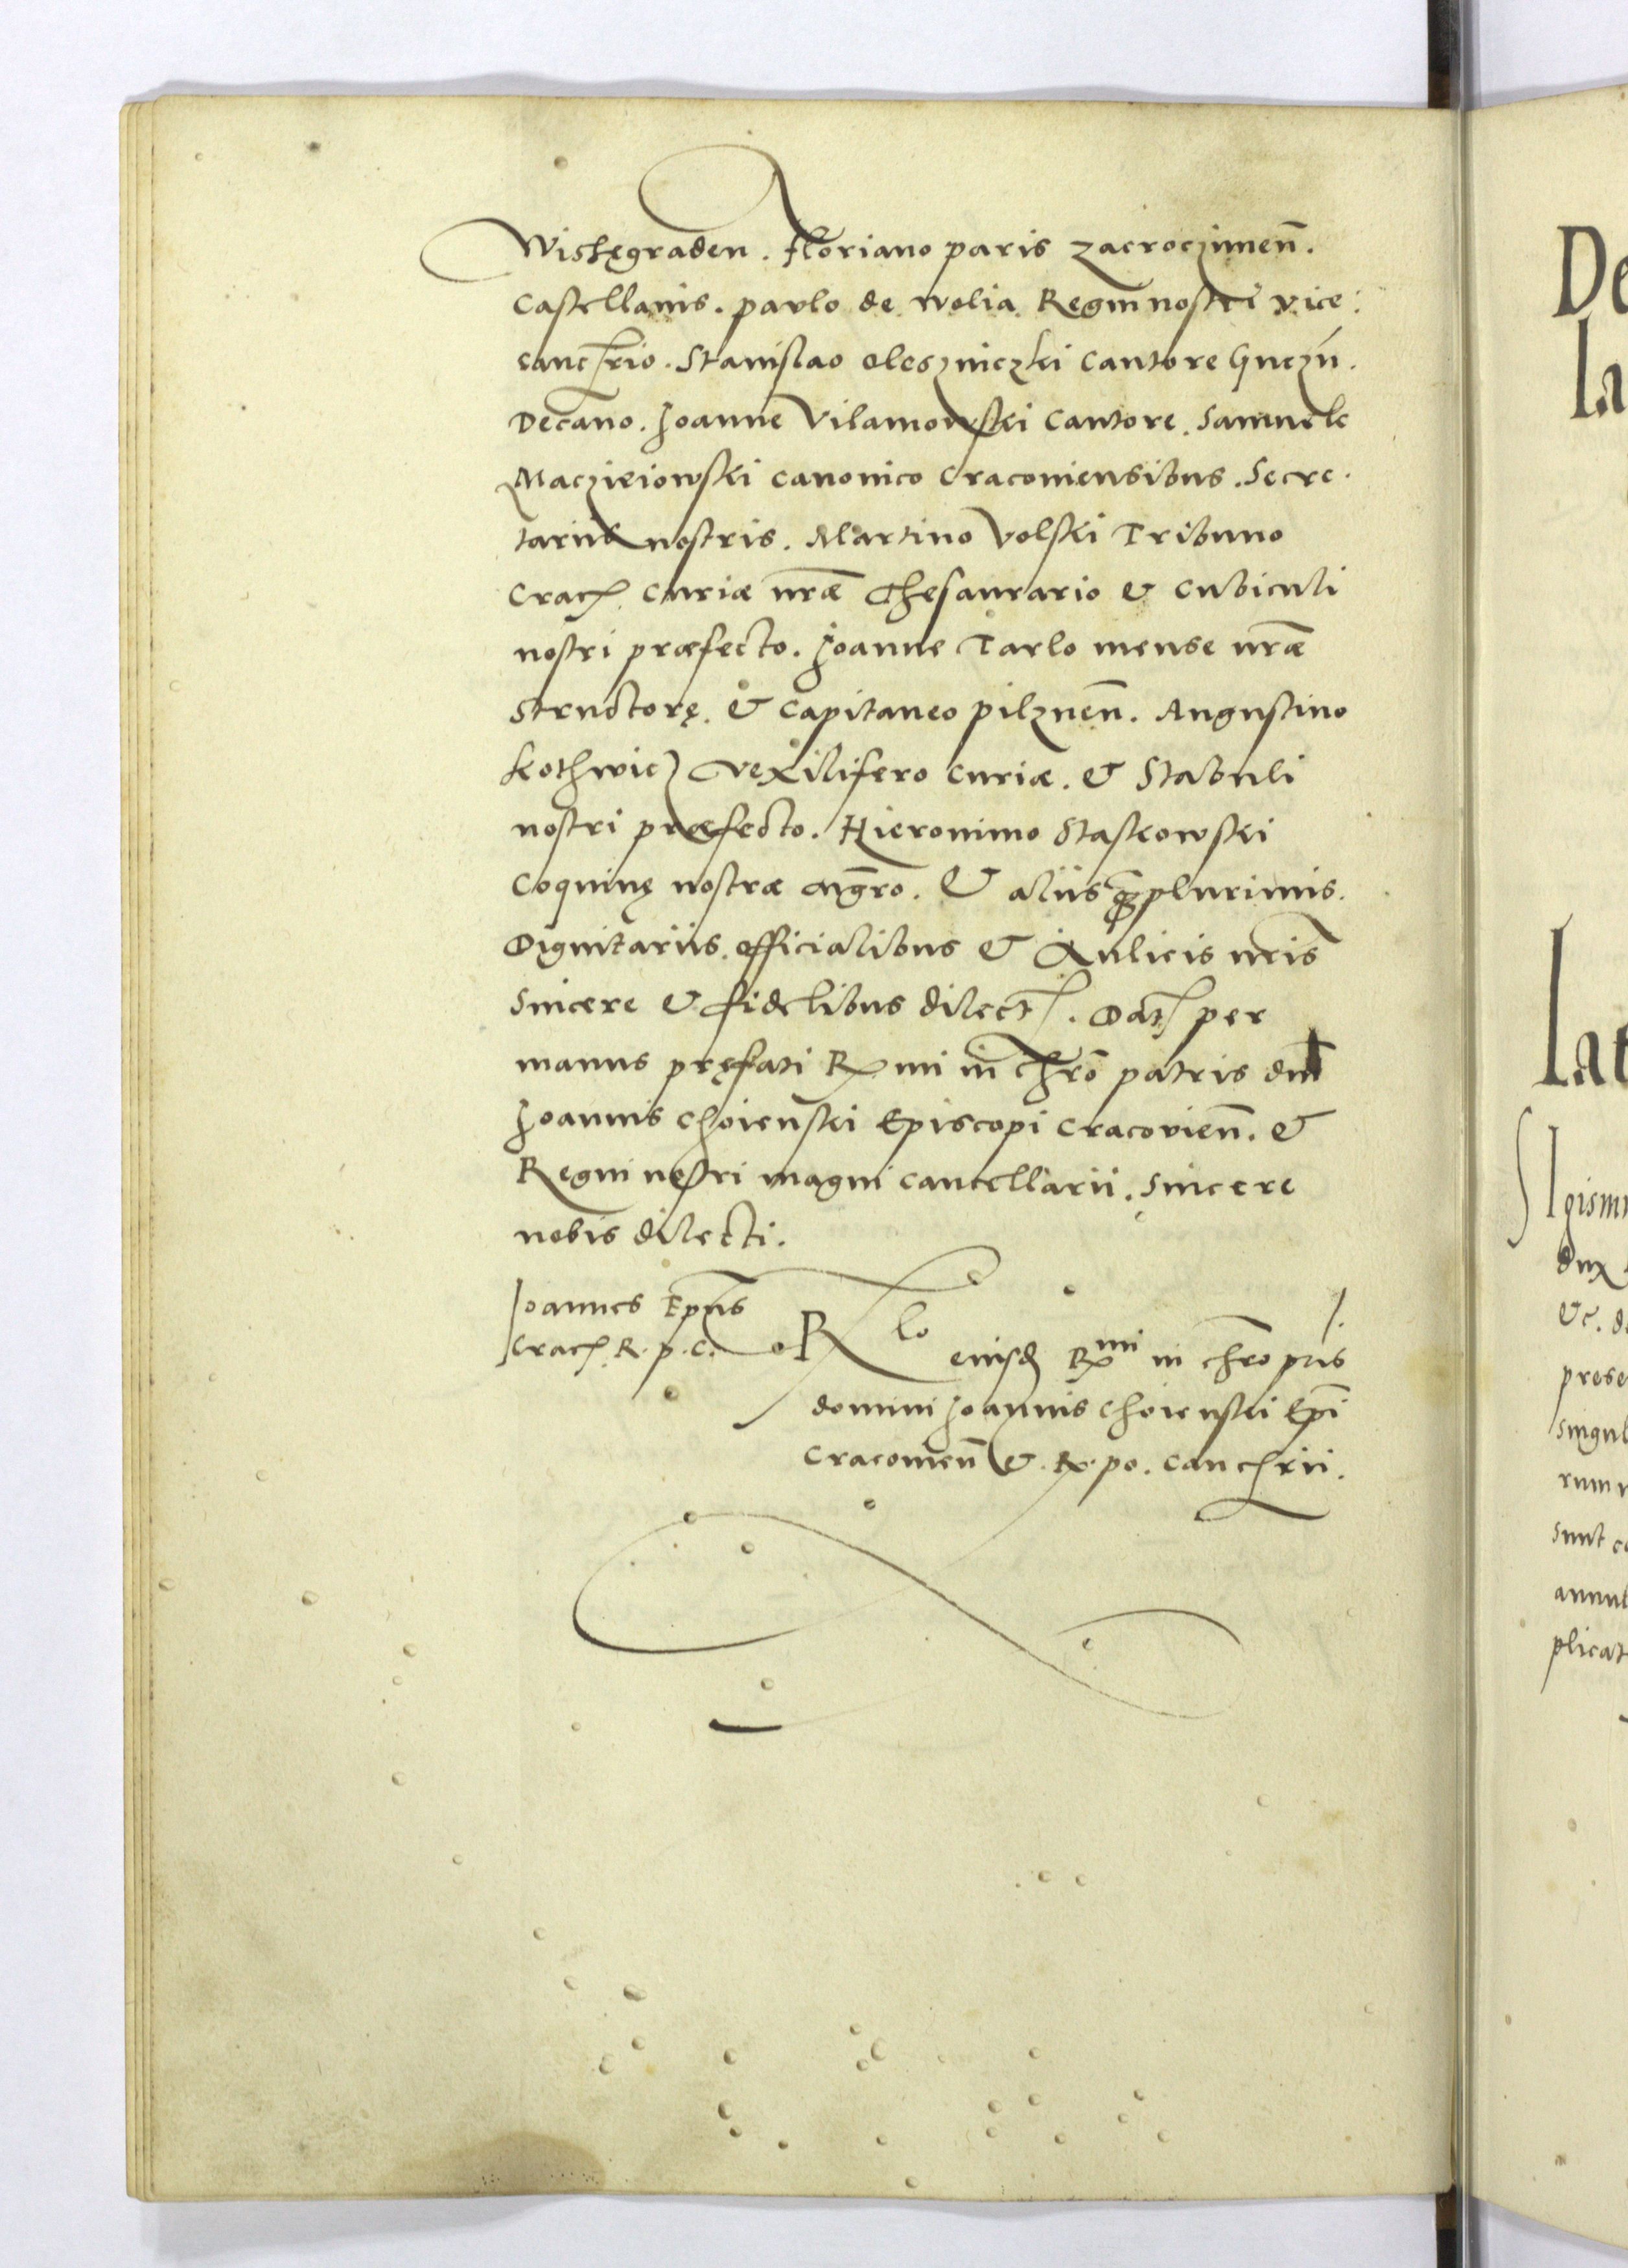 Wishęgraden. floriano paris zacroczimen̄.
Castellanis. pavlo de wolia Regni nostri vice:
cancꝉrio. Stanislao oleszniczki Cantore Gnezń.
Decano. Joanne Vilamowski Cantore. Samuele
Maczieiowski canonico Cracoviensibus. Secre.
tariis nostris. Martino Volski Tribuno
Crac. Curiæ nr̄æ Thesaurario & Cubiculi
nostri præfecto. Joanne Tarlo mense nr̄æ
Structorę. & Capitaneo pilznen̄. Augustino
kothwicz vexilifero curiæ. & Stabuli
nostri præfecto. Hieronimo Staskowski
Coquinę nostræ mgr̄o. & aliis q̄ plurimis.
Dignitariis. officialibus & Aulicis nr̄is
Sincere & fidelibus dilect. Dat per
manus pręfati R mi in chr̄o patris dn̄i
Joannis choienski Episcopi Cracovien̄. &
Regni nostri magni cancellarii. Sincere
nobis dilecti.
Joannes Ep̄us
Crac. R. p. C.
Rlo eiusd Rmi in chr̄o pris
domini Joannis choienski Ep̄i
Cracovien̄ & R. po. Cancꝉrii.
De
la
Iat
SIgism
dux
&c. d
prese
singul
rum
sunt c
annul
plicat